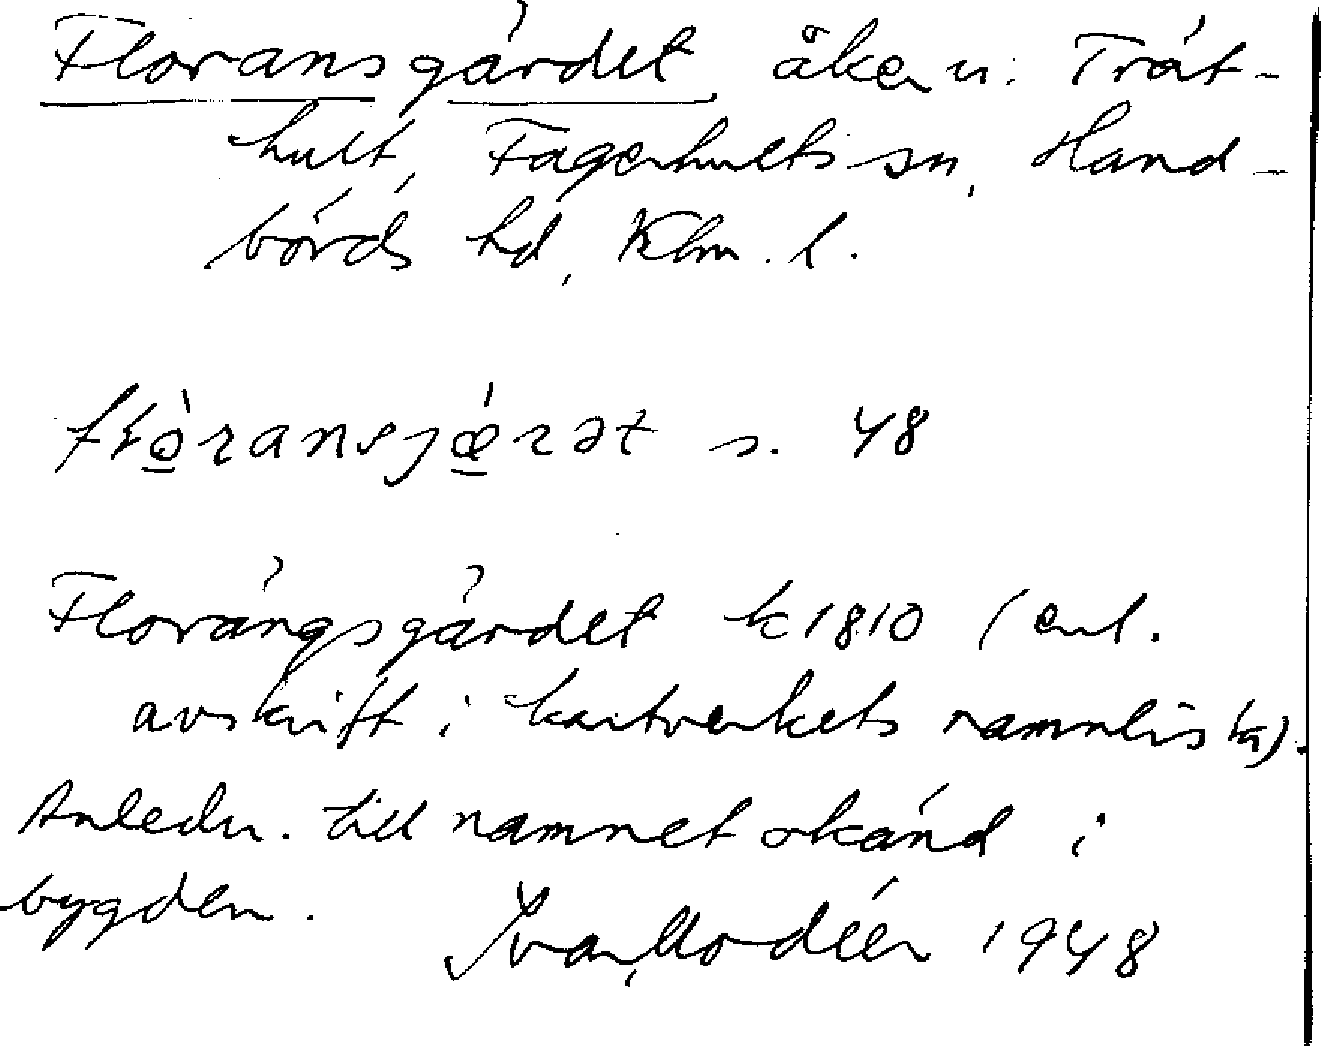 Floransgärdet åker u. Trät-
hult, Fagerhults sn, Hand-
börds hd, Klm. l.
s. 48
Florängsgärdet k 1810 (enl.
avskrift i kartverkets namnlista).
Anledn. till namnet okänd i
bygden. Ivar Modéer 1948